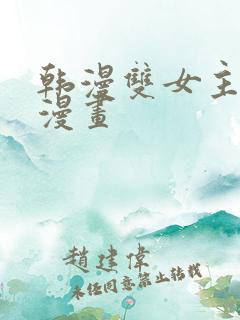 韩漫雙女主
漫畫
趙建偉
未经同意禁止转载